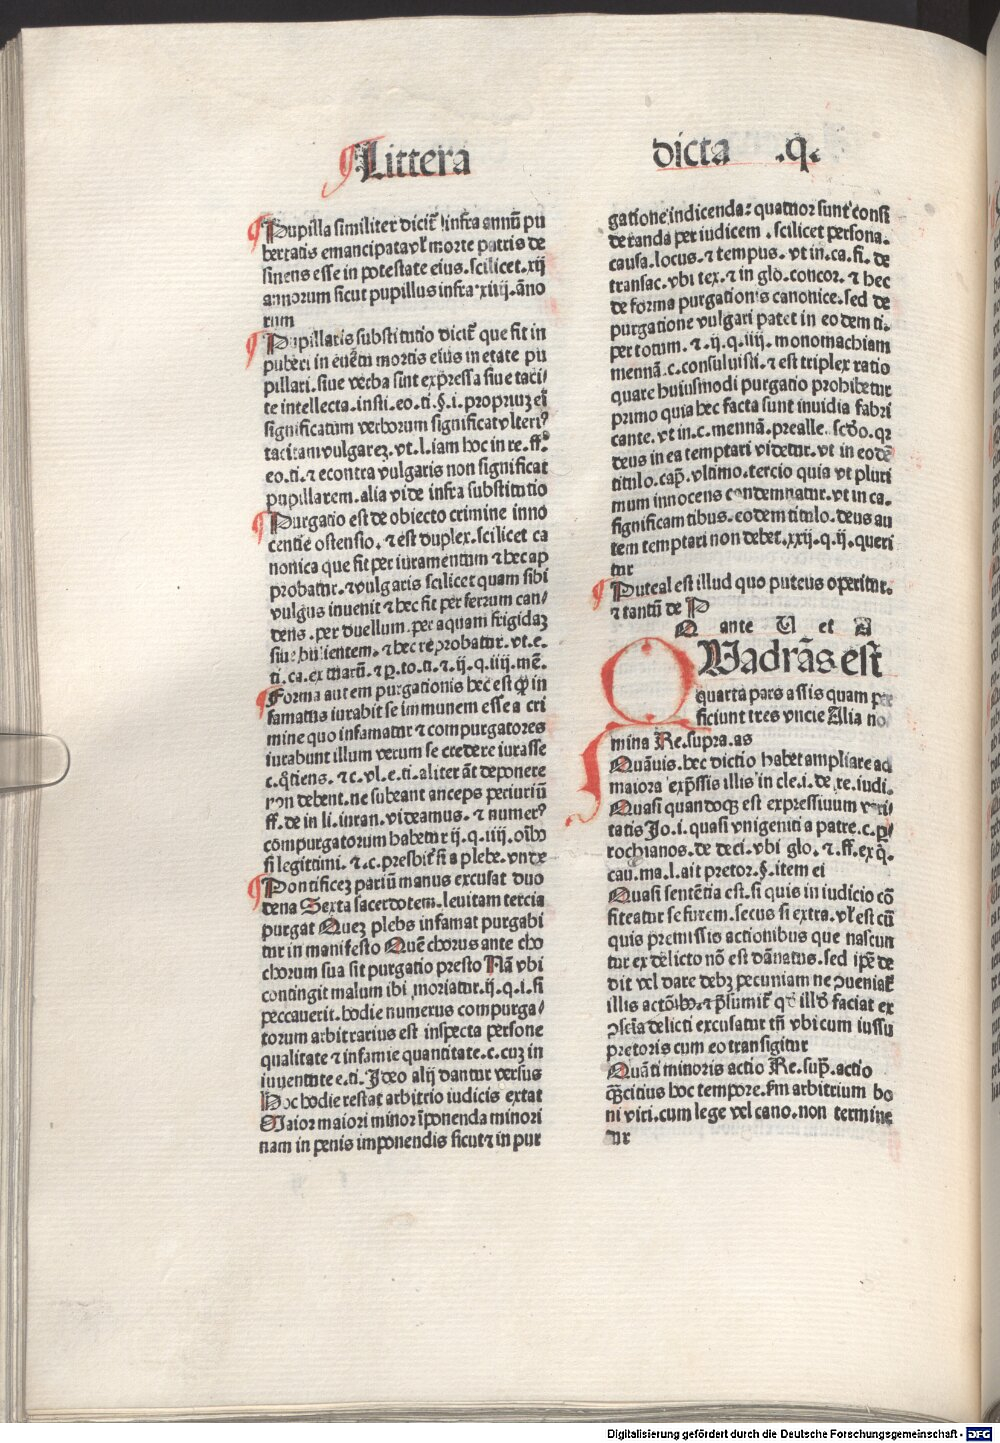 ¶Littera dicta .q.
¶Pupilla similiter dicit᷑ infra annū pu
bertatis emancipata vl̕ morte patris de
sinens esse in potestate eius.scilicet.xij
annorum sicut pupillus infra xiiij.āno
rum
¶Pupillaris substitutio dicit᷑ que fit in
puberi in euētū mortis eius in etate pu
pillari.siue verba sint expressa siue taci/
te intellecta.insti.eo.ti.§.i.propriuꝫ eī
significatum verborum significat vlteriꝰ
tacitam vulgareꝫ.vt.l.iam hoc in re.ff.
eo.ti.⁊ econtra vulgaris non significat
pupillarem.alia vide infra substitutio
¶Purgatio est de obiecto crimine inno
centie ostensio.⁊ est duplex.scilicet ca
nonica que fit per iuramentum ⁊ hec ap
probatur.⁊ vulgaris scilicet quam sibi
vulgus inuenit ⁊ hec fit per ferrum can/
dens.per duellum.per aquam frigidaꝫ
siue bulientem.⁊ hec reprobatur.vt.e.
ti.ca.ex tuarū.⁊ ꝑ.to.ti.⁊ ij.q.iiij.mē.
¶Forma autem purgationis hec est ꝙ in
famatus iurabit se immunem esse a cri
mine quo infamatur ⁊ compurgatores
iurabunt illum verum se credere iurasse
c.q̄tiens.⁊ c.vl.e.ti.aliter āt deponere
non debent.ne subeant anceps periuriū
ff.de in li.iuran.videamus.⁊ numerꝰ
compurgatorum habetur ij.q.iiij.oīb9
si legittimi.⁊.c.presbit᷑ si a plebe.vnde
¶Pontificeꝫ pariū manus excusat duo
dena Sexta sacerdotem.leuitam tercia
purgat Queꝫ plebs infamat purgabi
tur in manifesto Quē chorus ante cho
chorum sua sit purgatio presto Nā vbi
contingit malum ibi moriatur.ij.q.i.si
peccauerit.hodie numerus compurga/
torum arbitrarius est inspecta persone
qualitate ⁊ infamie quantitate.c.cuꝫ in
iuuentute e.ti.Ideo alij dantur versus
Hoc hodie restat arbitrio iudicis extat
Maior maiori minor īponenda minori
nam in penis imponendis sicut ⁊ in pur
gatione indicenda: quatuor sunt consi
deranda per iudicem.scilicet persona.
causa.locus.⁊ tempus.vt in.ca.fi.de
transac.vbi tex.⁊ in glo.concor.⁊ hec
de forma purgationis canonice.sed de
purgatione vulgari patet in eodem ti.
per totum.⁊.ij.q.iiij.monomachiam
mennā.c.consuluisti.⁊ est triplex ratio
quare huiusmodi purgatio prohibetur
primo quia hec facta sunt inuidia fabri
cante.vt in.c.mennā.prealle.scd̄o.qꝛ
deus in ea temptari videtur.vt in eodē
titulo.cap̄.vltimo.tercio quia vt pluri
mum innocens condemnatur.vt in ca.
significantibus.eodem titulo.deus au
tem temptari non debet.xxij.q.ij.queri
tur
¶Puteal est illud quo puteus operitur.
⁊ tantū de P
Q ante U et A
QUadrās est
quarta pars assis quam per
ficiunt tres vncie Alia no
mina Re.supra.as
Quāuis.hec dictio habet ampliare ad
maiora exp̄ssis illis in cle.i.de re.iudi.
Quasi quandoqꝫ est expressiuum veri/
tatis Jo.i.quasi vnigeniti a patre.c.ꝑ/
rochianos.de deci.vbi glo.⁊.ff.ex q̄.
cau.ma.l.ait pretor.§.item ei
Quasi sentētia est.si quis in iudicio cō
fiteatur se furem.secus si extra.vl̕ est cū
quis premissis actionibus que nascun
tur ex delicto nō est dānatus.sed ip̄e de
dit vel dare debꝫ pecuniam ne ↄueniat᷑
illis actōib9.⁊ p̄sumit᷑ qd̓ illd̓ faciat ex
ↄsciā delicti excusatur tn̄ vbi cum iussu
pretoris cum eo transigitur
Quāti minoris actio Re.sup̄.actio
Qḡcitius hoc tempore.fm arbitrium bo
ni viri.cum lege vel cano.non termine
tur
Digitalisierung gefördert durch die Deutsche Forschungsgemeinschaft - DFG